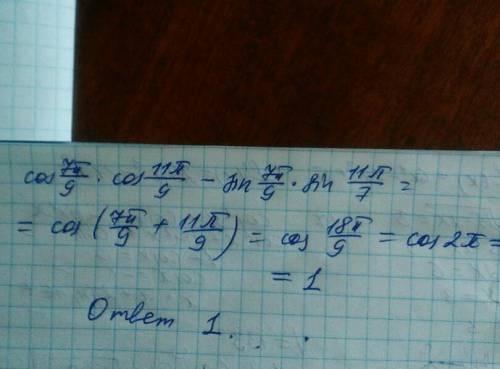 cos 7π/9 · cos 11π/9 − sin 7π/9 · sin 11π/7 =
= cos (7π/9 + 11π/9) = cos 18π/9 = cos 2π =
= 1
Ответ 1.